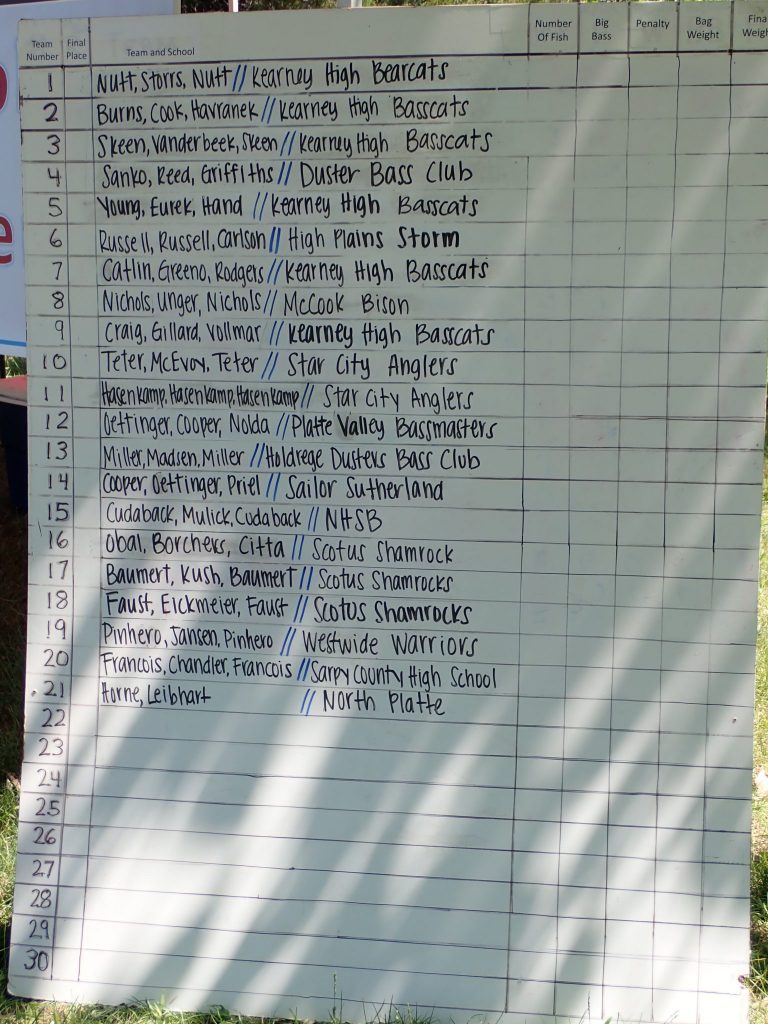 Team Number Final Place Team and School Number Of Fish Big Bass Penalty Bag Weight Final Weigh
1 Nutt, Storrs, Nutt // Kearney High Bearcats
2 Burns, Cook, Havranek // Kearney High Basscats
3 Skeen, Vanderbeek, Skeen // Kearney High Basscats
4 Sanko, Reed, Griffiths // Duster Bass Club
5 Young, Eurek, Hand // Kearney High Basscats
6 Russell, Russell, Carlson // High Plains Storm
7 Catlin, Greeno, Rodgers // Kearney High Basscats
8 Nichols, Unger, Nichols // McCook Bison
9 Craig, Gillard, Vollmar // Kearney High Basscats
10 Teter, McEvoy, Teter // Star City Anglers
11 Hasenkamp, Hasenkamp, Hasenkamp // Star City Anglers
12 Oettinger, Cooper, Nolda // Platte Valley Bassmasters
13 Miller, Madsen, Miller // Holdrege Dusters Bass Club
14 Cooper, Oettinger, Priel // Sailor Sutherland
15 Cudaback, Mulick, Cudaback // NHSB
16 Obal, Borchers, Citta // Scotus Shamrock
17 Baumert, Kush, Baumert // Scotus Shamrocks
18 Faust, Eickmeier, Faust // Scotus Shamrocks
19 Pinhero, Jansen, Pinhero // Westwide Warriors
20 Francois, Chandler, Francois // Sarpy County High School
21 Horne, Leibhart // North Platte
22
23
24
25
26
27
28
29
30